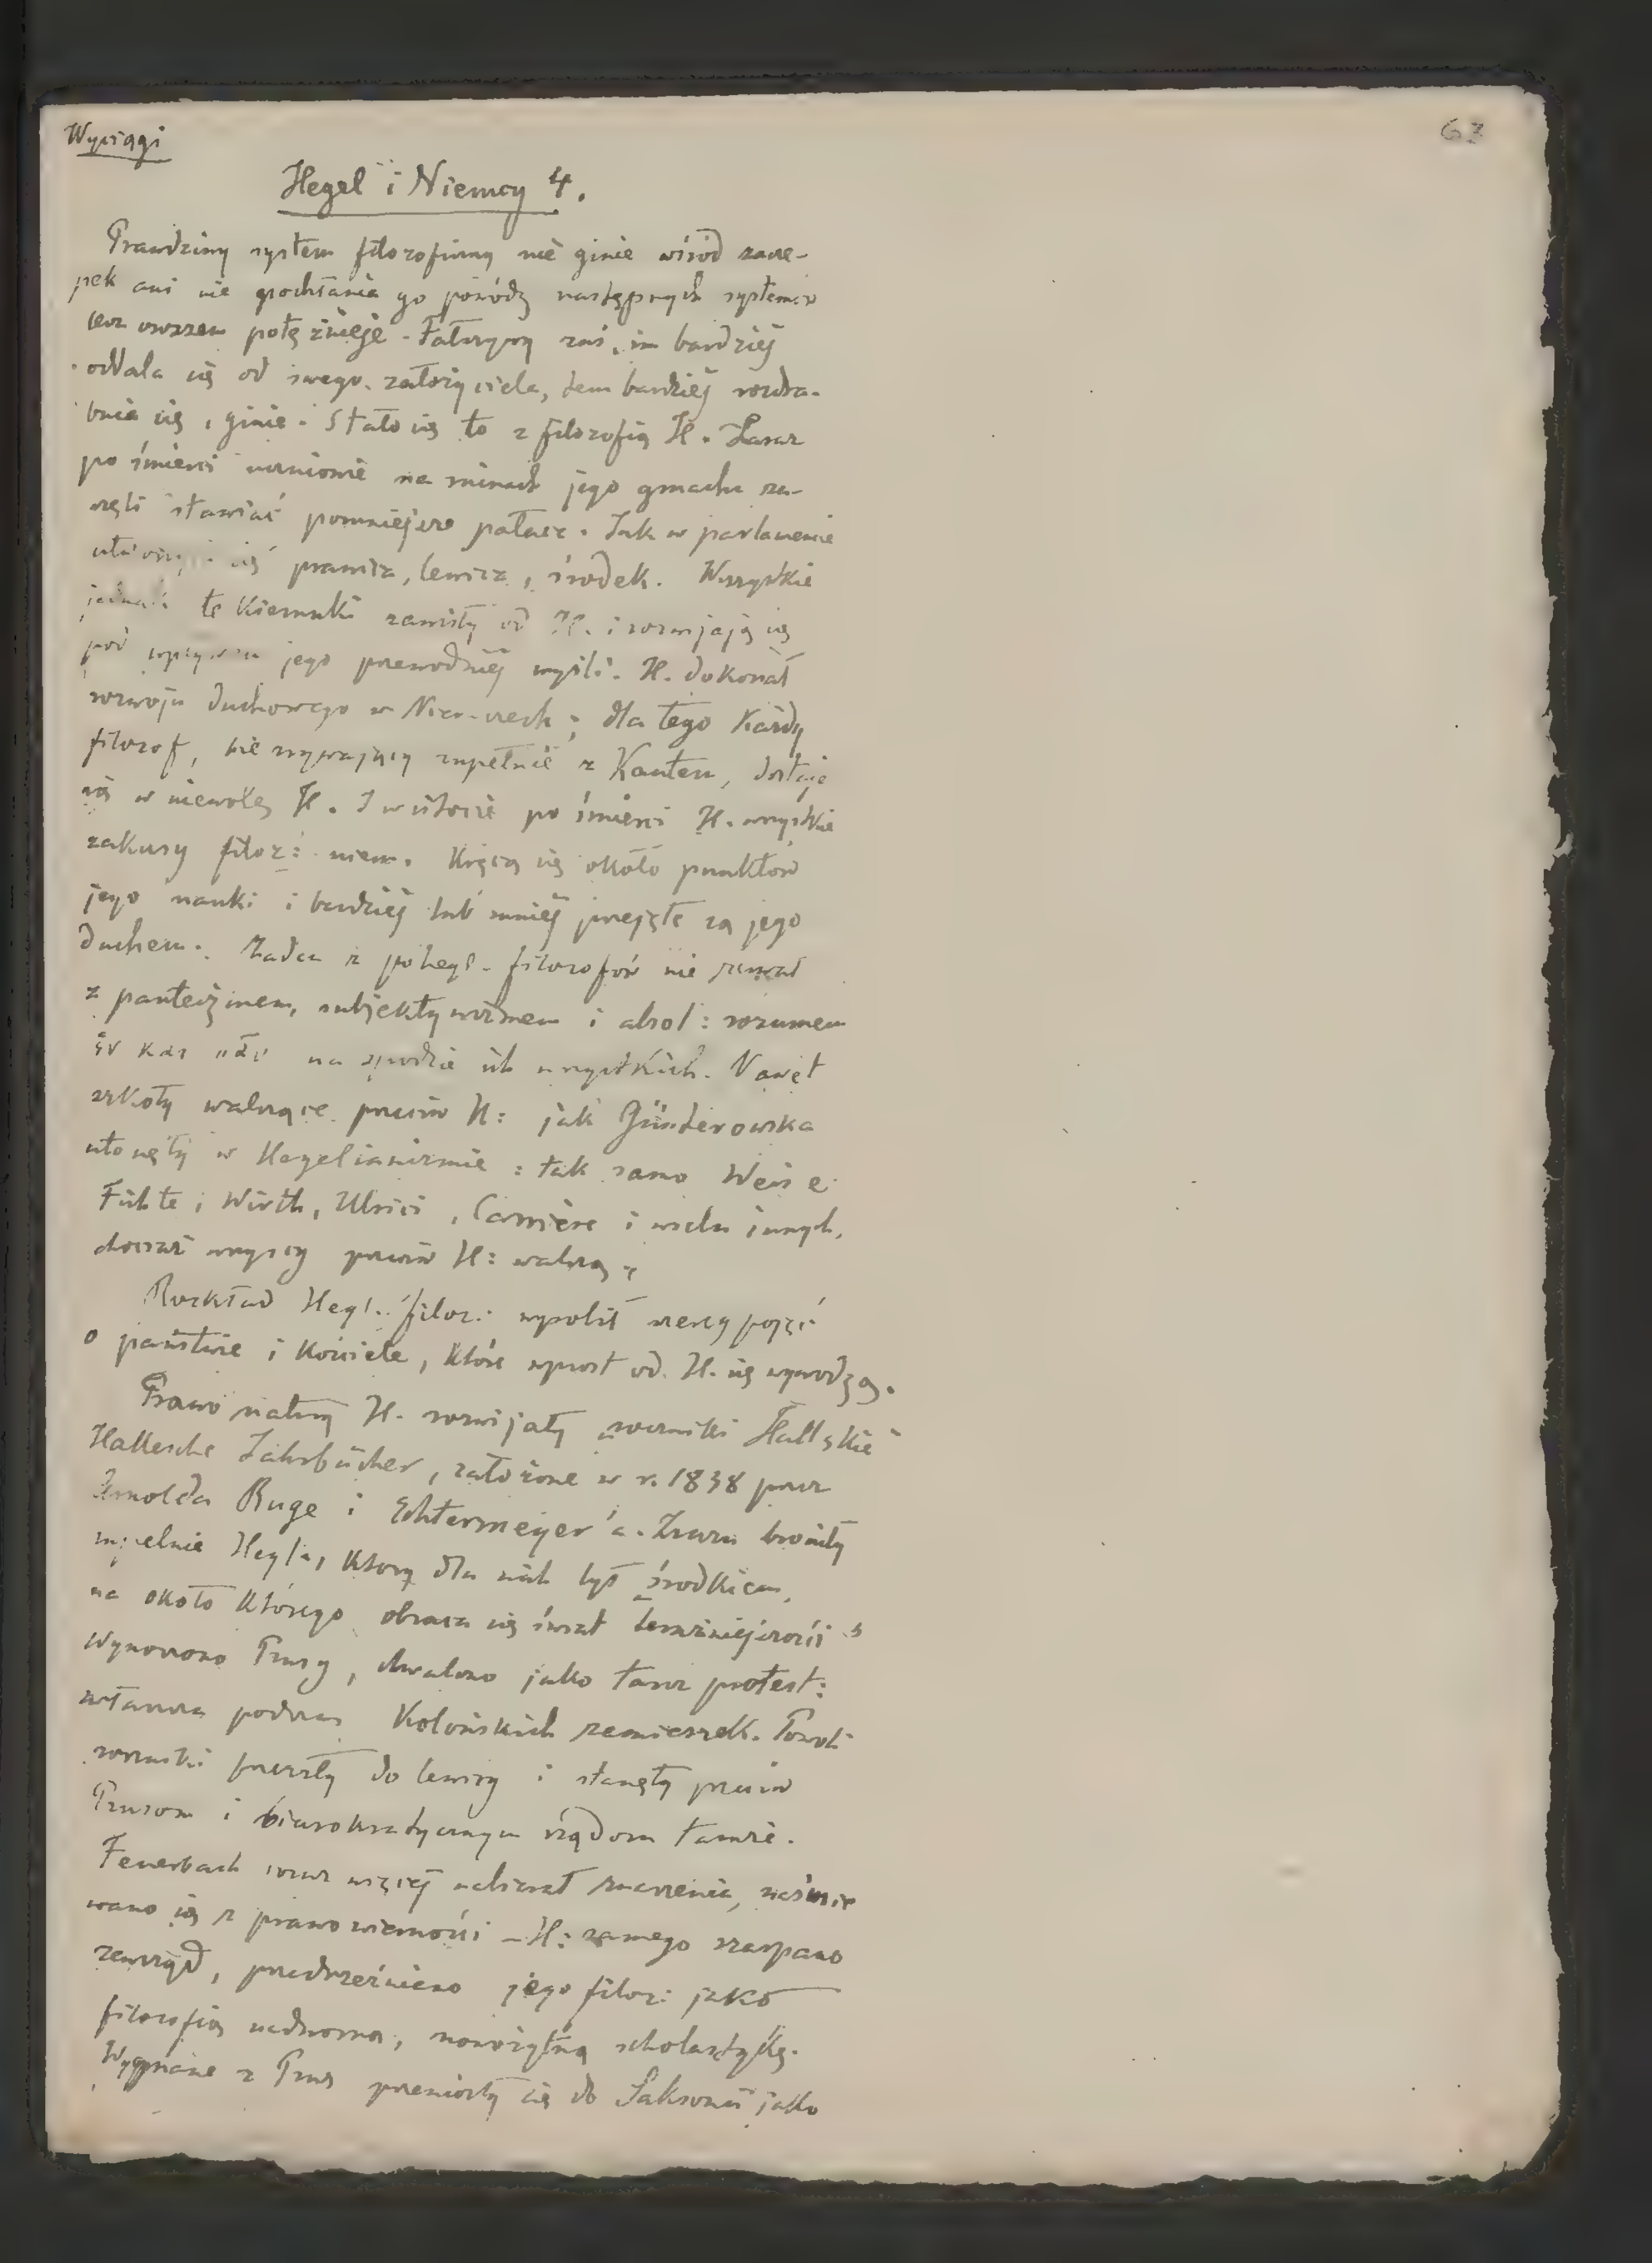 Wyciągi
63
Hegel i Niemcy 4.
Prawdziwy system filozoficzny nie ginie wśród zacze-
pek ani nie pochłania go powódź następnych systemów
lecz owszem potężnieje. Fałszywy zaś, im bardziej
oddala się od swego założyciela, tem bardziej rozdra-
bnia się, ginie. Stało się to z filozofią H. Zaraz
po śmierci uczniowie na ruinach jego gmachu za-
częli stawiać pomniejsze pałace. Jak w parlamencie
utworzyła się prawica, lewica, środek. Wszystkie
jednak te kierunki zawisły od H. i rozwijają się
pod wpływem jego przewodniej myśli. H. dokonał
rozwoju duchowego w Niemczech; dla tego każdy
filozof, nie zrywający zupełnie z Kantem, dostaje
się w niewolę H. I w istocie po śmierci H. wszystkie
zakusy filoz: niem. kręcą się około punktów
jego nauki i bardziej lub mniej przejęte są jego
duchem. Żaden z pohegl. filozofów nie zerwał
z panteizmem, subjektywizmem i absol: rozumem
ἓν καὶ πᾶν na spodzie ich wszystkich. Nawet
szkoły walczące przeciw H: jak Günterowska
utonęły w Hegelianizmie: tak samo Weisse
Fichte, Wirth, Ulrici, Carriere i wielu innych,
chociaż wszyscy przeciw H: walczą.
Rozkład Hegl: filoz: wyrobił szereg pojęć
o państwie i kościele, które wprost od H. się wywodzą.
Prawo natury H. rozwijały roczniki Hallskie
Hallesche Jahrbücher, założone w r. 1838 przez
Arnolda Ruge i Echtermeyer'a. Zrazu broniły
zupełnie Hegla, który dla nich był „środkiem,
na około którego obraca się świat teraźniejszości"
Wynoszono Prusy, chwalono jako tarcz protest:
zwłaszcza podczas Kolońskich zamieszek. Powoli
roczniki przeszły do lewicy i stanęły przeciw
Prusom i biurokratycznym rządom tamże.
Feuerbach coraz więcej nabierał znaczenia, naśmie
wano się z prawowierności – H: samego szarpano
zewsząd, przedrzeźniano jego filoz: jako
filozofią nadworną, nowożytną scholastykę.
Wygnane z Prus przeniosły się do Saksonii jako